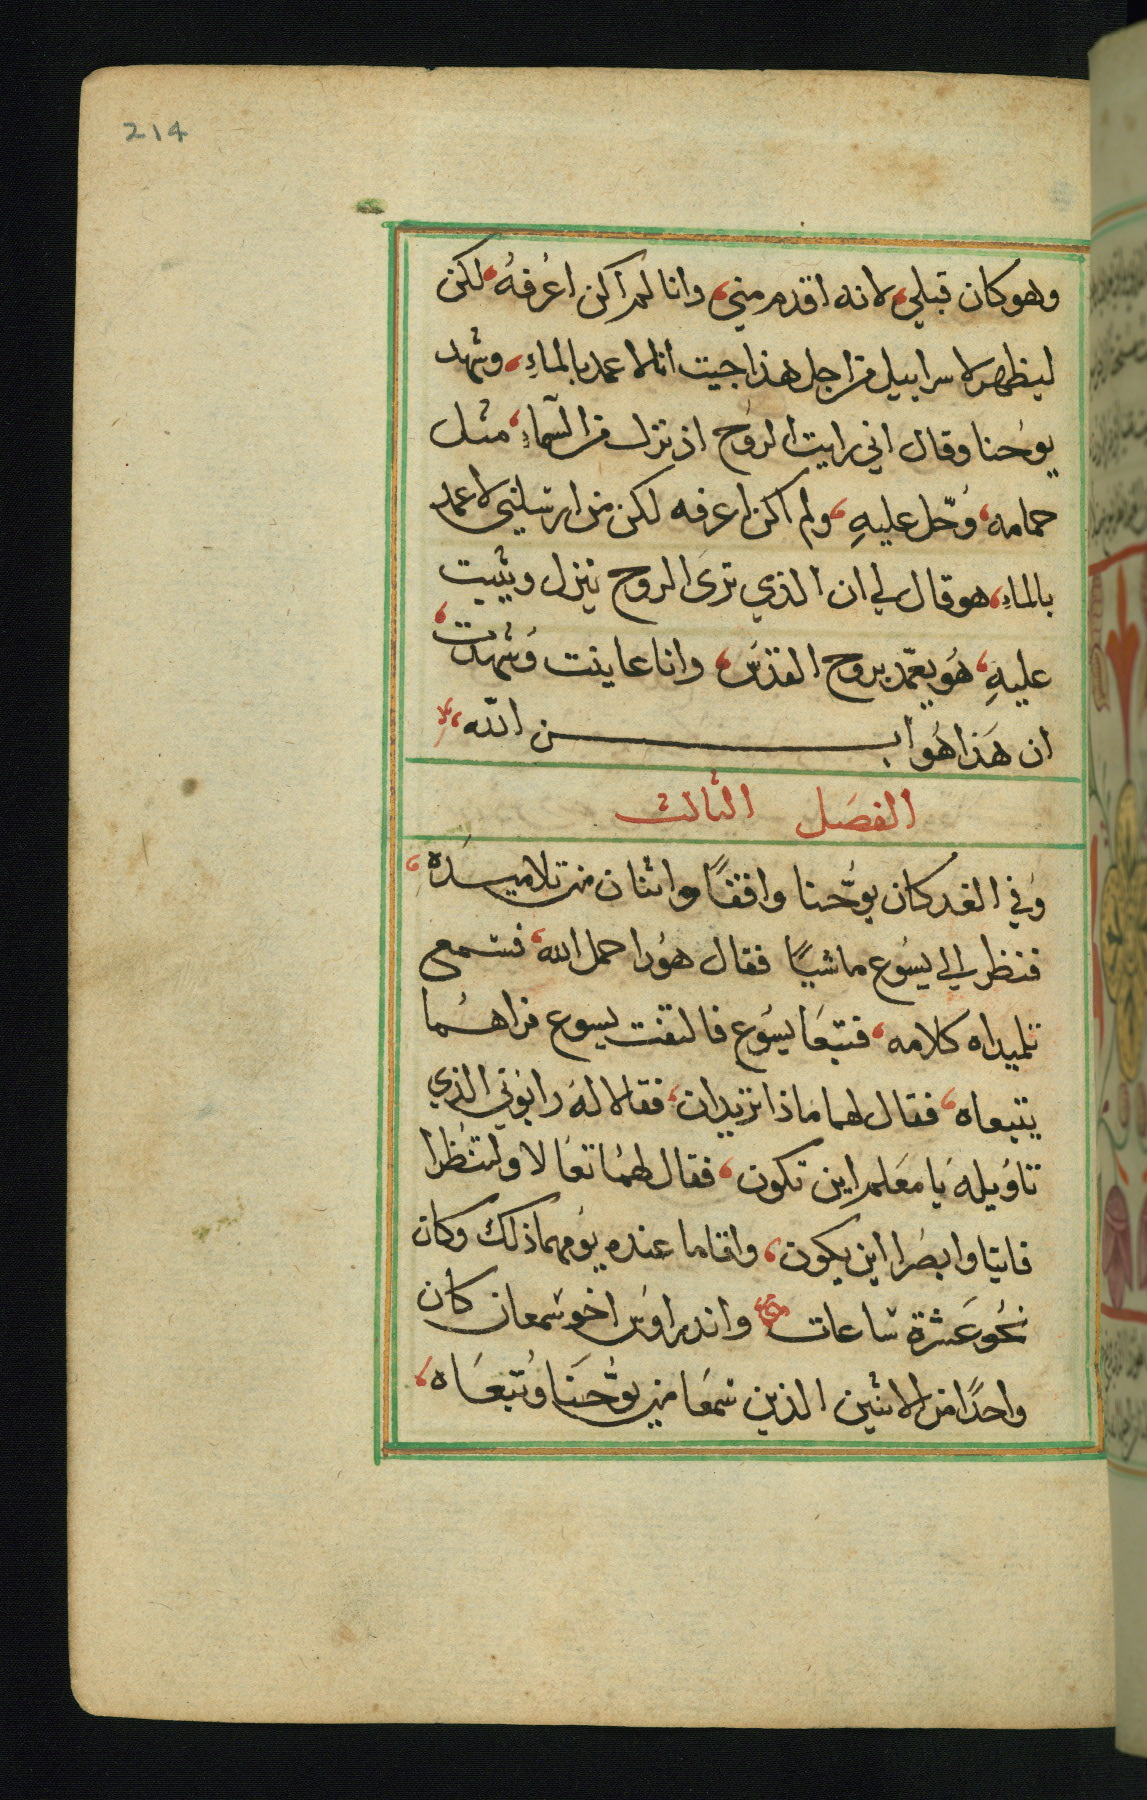 214
وهو كان قبلي، لانه اقدم مني، وانا لم اكن اعرفهُ، لكن
ليظهر لاسراييل من اجل هذا جيت انا لاعمد بالماءِ، وشهد
يوحنا وقال اني رايت الروح اذ نزل من السماءِ، مثل
حمامه، وحّل عليهِ، ولم اكن اعرفه لكن من ارسلني لاعمد
بالماءِ، هو قال لي ان الذي ترىَ الروح ينزل ويثبت
عليهِ، هُو يعمّد بروح القدس، وانا عاينت وشهدت،
ان هَذا هُو ابن الله،
الفصَل الثالث
وفي الغد كان يوحنا واقفاً واثنان من تلاميده،
فنظر الي يسُوع ماشياً فقال هوُدا حمل الله، فسمع
تلميداه كلامه، فتبعَا يسُوع فالتفت يسوع فراهُما
يتبعاه، فقال لهما مَاذا تريدان، فقالا لهَ رابوني الذي
تاوُيله يَا معَلم اين تكون، فقال لهمُا تعَالا ولتنظُرا
فاتيا وابصَرا اين يكون، واقاما عنده يومهما ذلك وكان
نحُو عَشرة ساعات واندراوُس اخو سمعان كان
واحدًا من الاثنين الذين سمعَا من يوحَنا وتبعَاه،